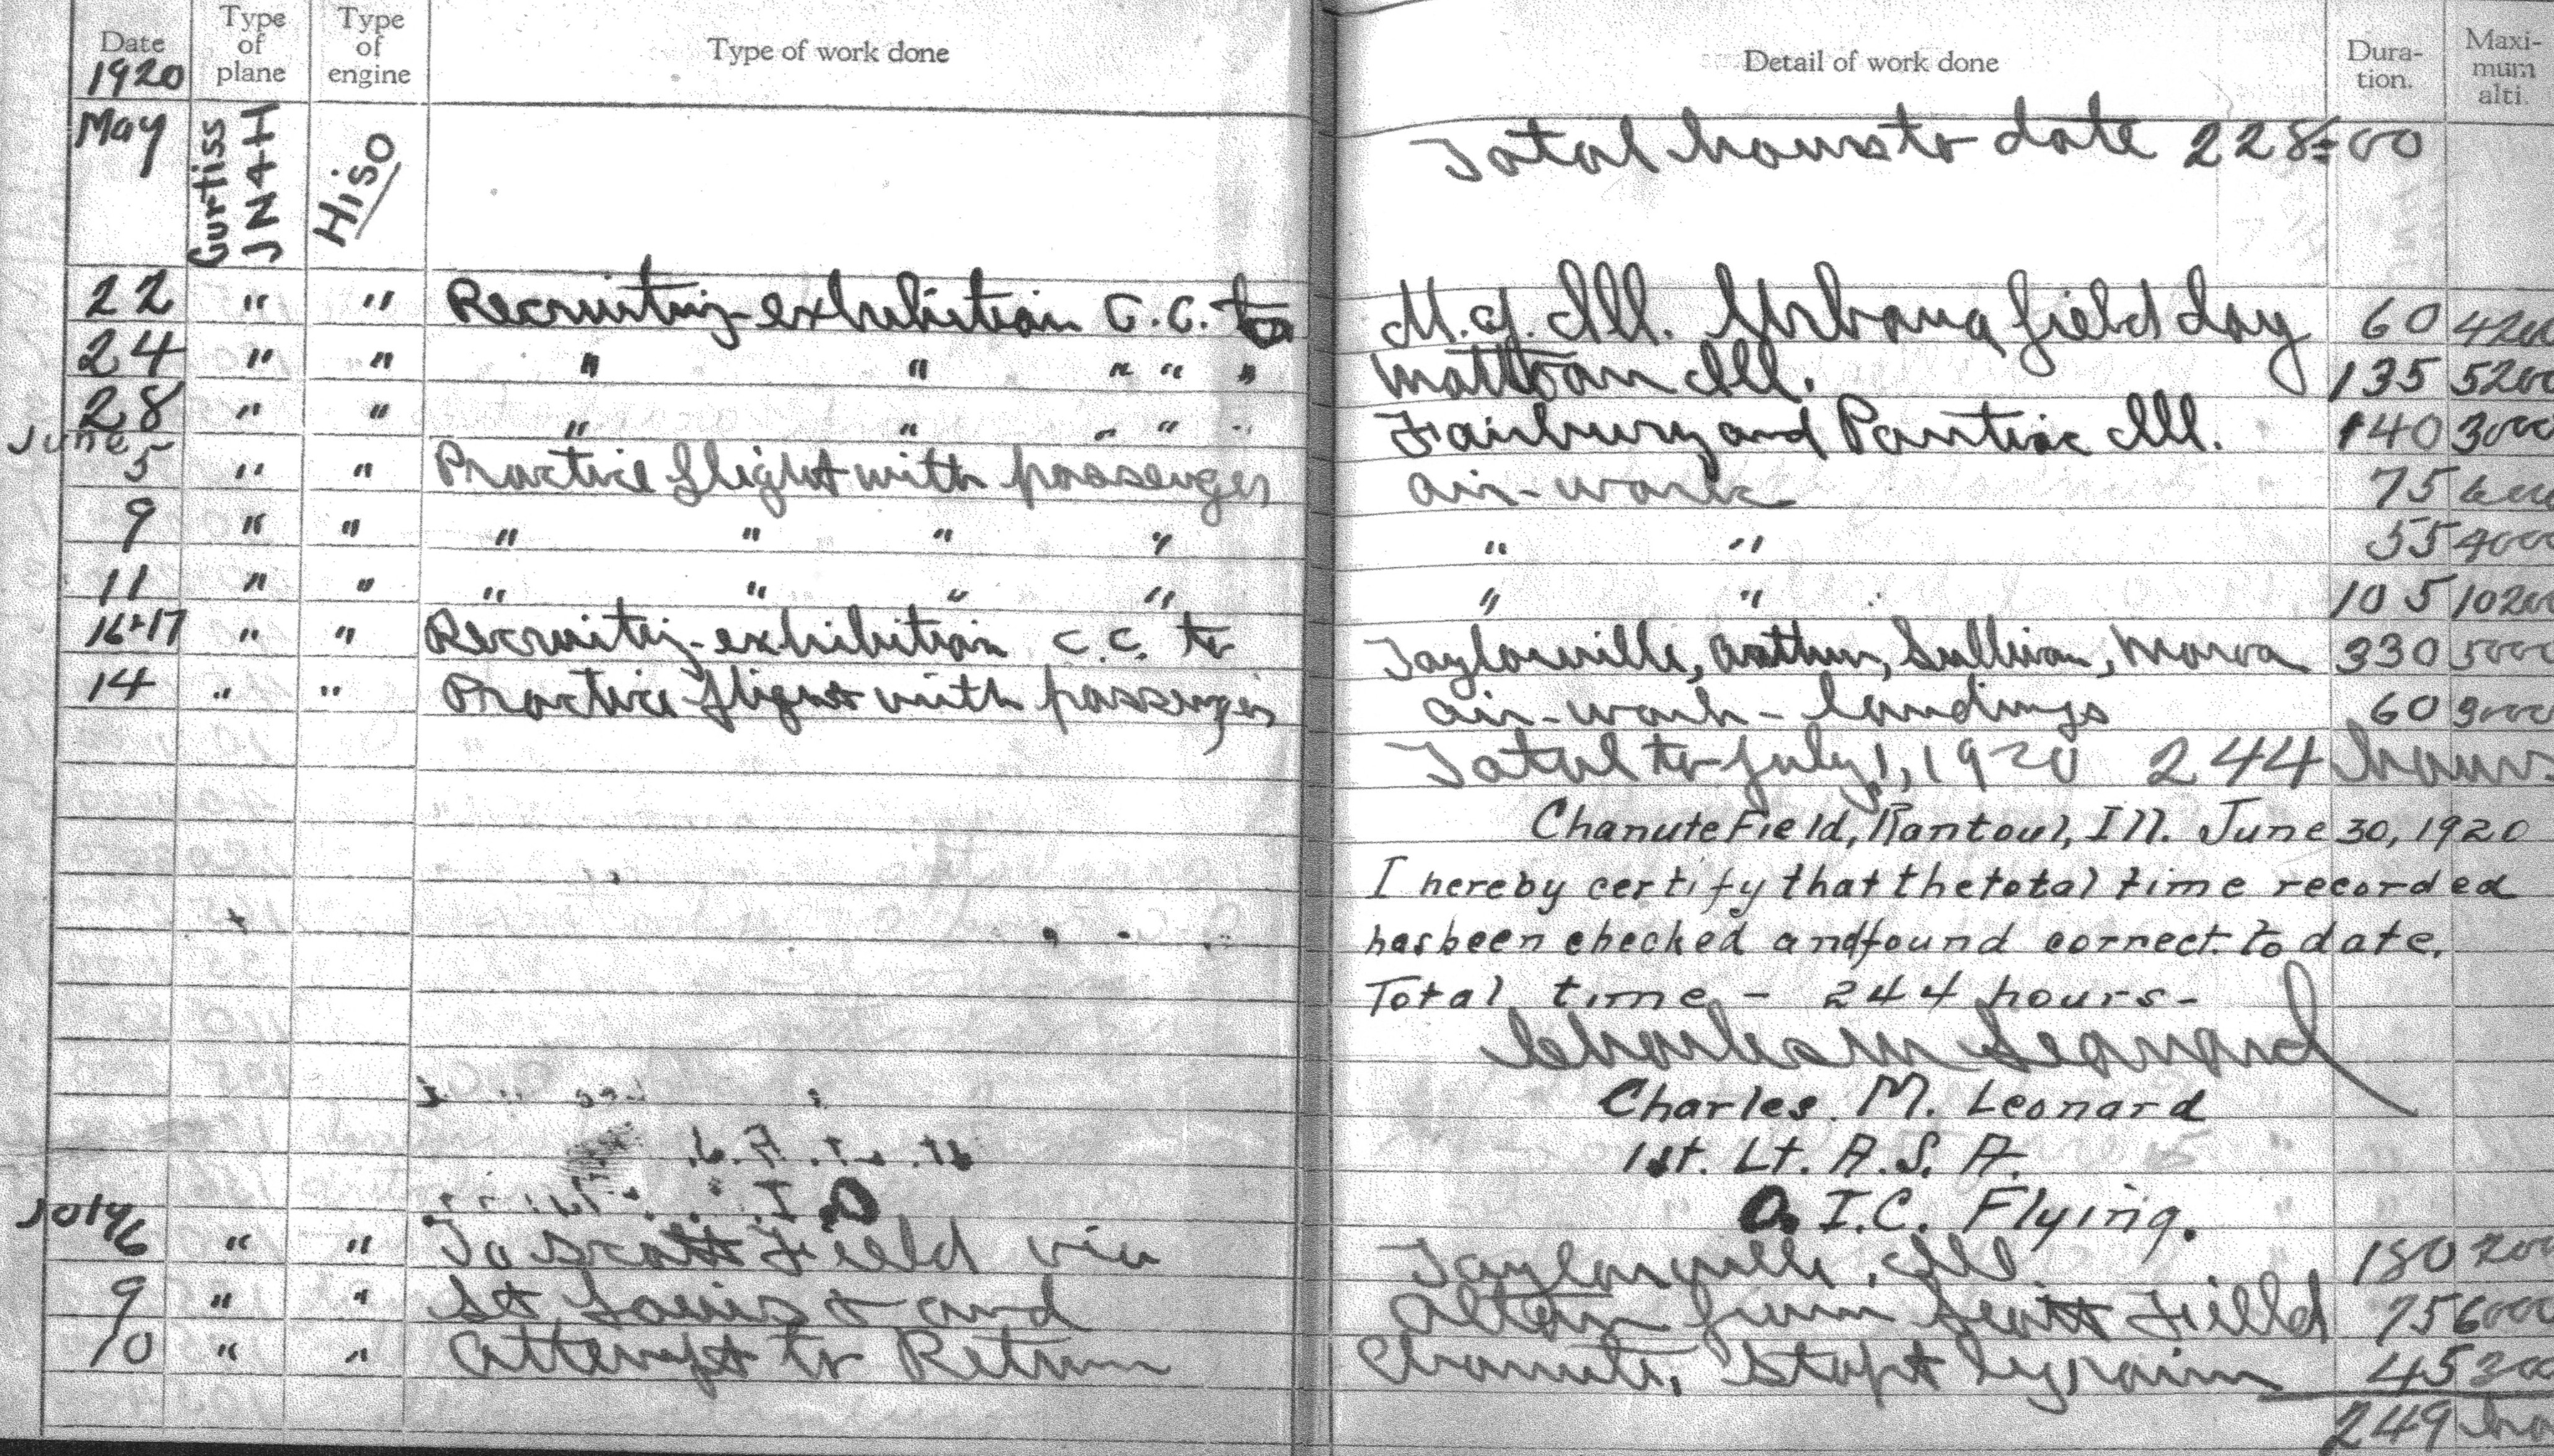 Date Type of plane Type of engine Type of work done Detail of work done Dura-tion. Maxi-mum alti.
1920
May Curtiss JN4H Hiso Total hours to date 228:00
22 " " Recruiting-exhibition C.C. to Ill. Urbana field day 60 4200
24 " " " " " " " Mattoon Ill. 135 5200
28 " " " " " " " Fairbury and Pontiac Ill. 140 3000
June
5 " " Practice flight with passenger air-work 75
9 " " " " " " " " 55 4000
11 " " " " " " " " 105 10200
16+17 " " Recruiting-exhibition C.C. to Taylorville, Arthur, Sullivan, Moroa 330 5000
14 " " Practice flight with passenger air-work-landings 60 3000
Total to July 1, 1920 244 hours
Chanute Field, Rantoul, Ill. June 30, 1920
I hereby certify that the total time recorded
has been checked and found correct to date.
Total time - 244 hours-
Charles M Leonard
Charles. M. Leonard
1st. Lt. A.S. A.
O. I.C. Flying.
July
6 " " To Scott Field via Taylorville, Ill. 180 200
9 " " St Louis + and Alton from Scott Field 75 6000
10 " " Attempt to Return Chanute, Stopt by rain 45 300
249 ho